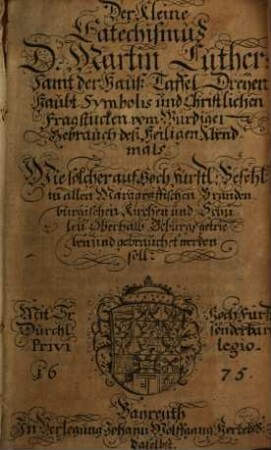 Der Kleine
Catechismus
D. Martin Luther:
Samt der Hauß Taffel Dreyen
Haubt Symbolis und Christlichen
Fragstucken vom Wurdigen
Gebrauch deß Heiligen Abend
mals
Wie solcher auf Hoch Fürstl: Befehl
in allen Marggräffischen Branden
burgischen Kirchen und Schu
len Oberhalb Gebürgs getrie
ben und gebrauchet werden
soll:
Mit Ir Hoch Fürst
Dürchl sonderbar
Privi legio.
16 75.
Bayreuth
In Verlegung Johann Wolffgang
daselbst.